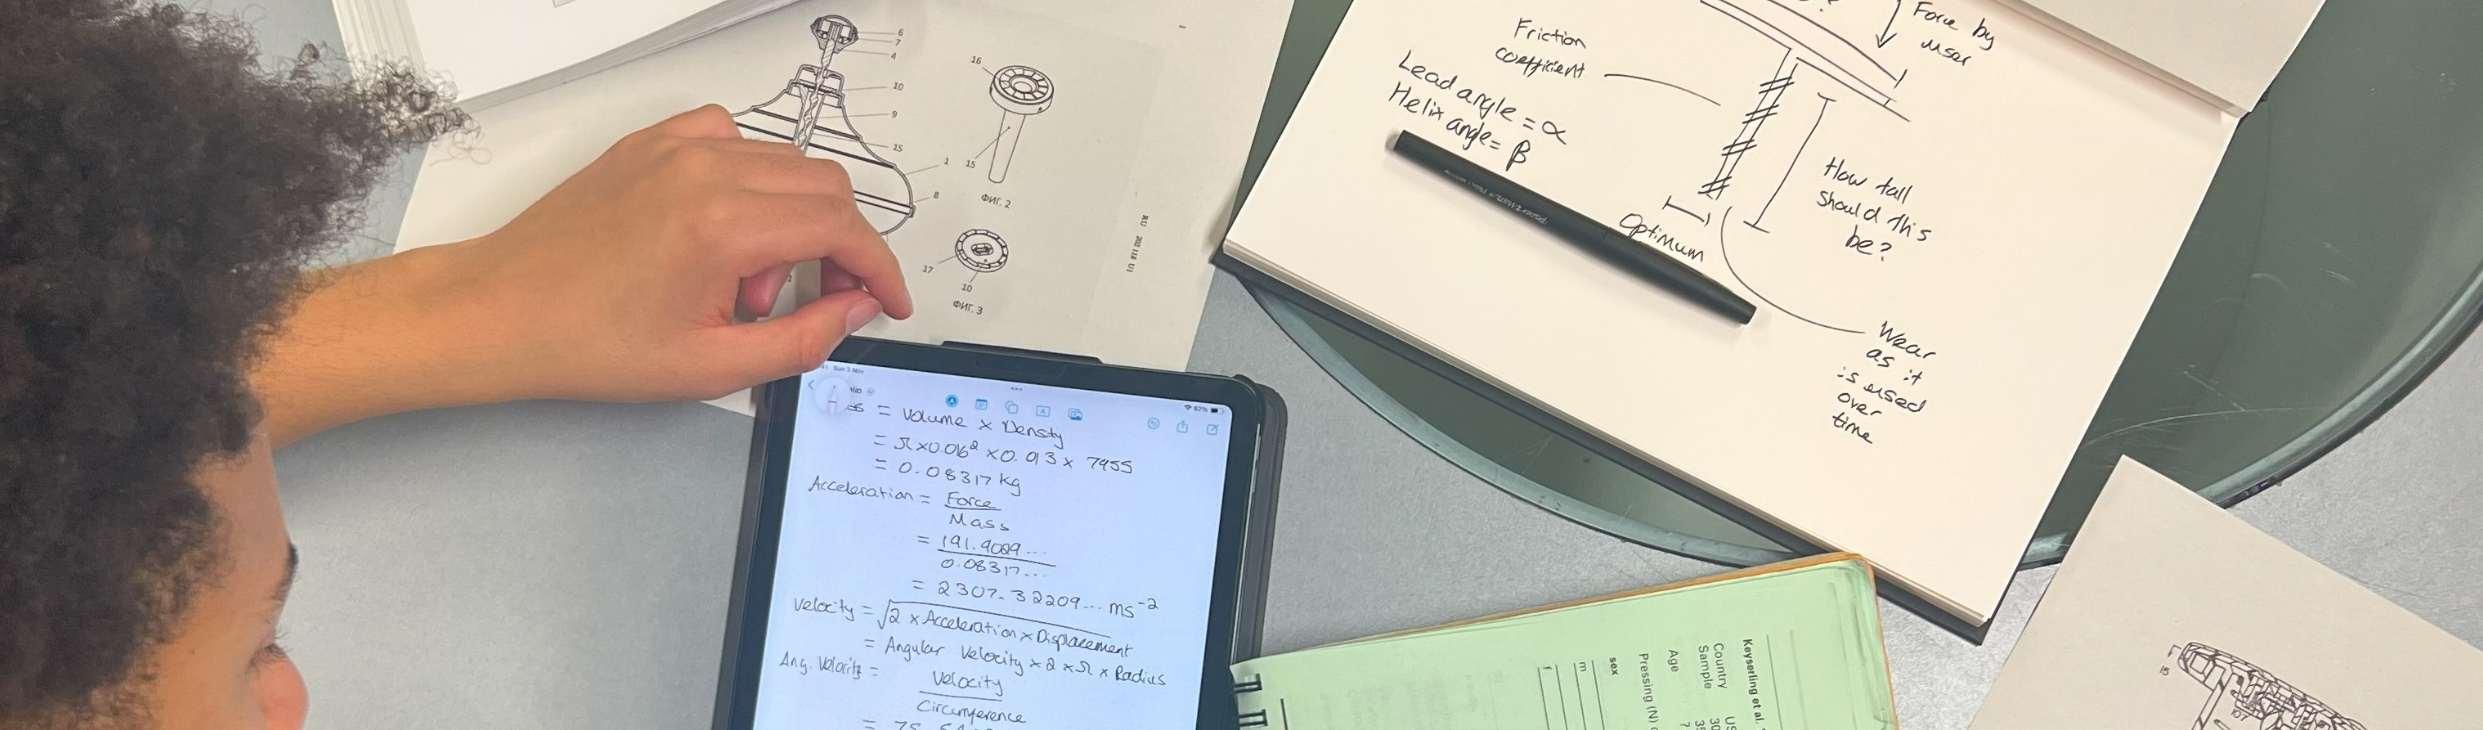 6
7
4
10
9
15
1
8
16
15
ФИГ. 2
17
10
ФИГ. 3
RU 202118 U1
Friction
coefficient
Lead angle = α
Helix angle = β
Force by
user
How tall
should this
be?
Optimum
Wear
as it
is used
over
time
Sun 3 Nov
92%
= Volume × Density
= π × 0.016² × 0.013 × 7955
= 0.08317 kg
Acceleration = Force
Mass
= 191.9029...
0.08317...
= 2307.32209... ms⁻²
Velocity = √2 × Acceleration × Displacement
= Angular Velocity × 2 × π × Radius
Ang. Velocity = Velocity
Circumference
Keyserling et al.
Country
Sample
Age
Pressing (N)
sex
m
f
15
107